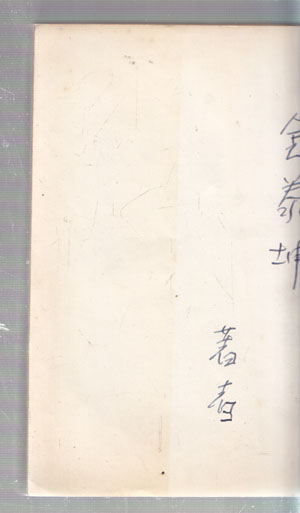 金泰坤
著者